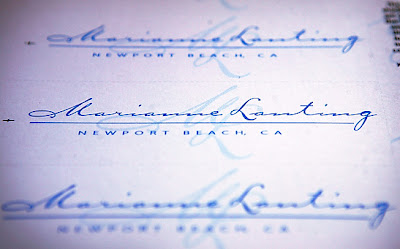 Marianne Lanting
NEWPORT BEACH, CA
Marianne Lanting
NEWPORT BEACH, CA
Marianne Lanting
NEWPORT BEACH, CA